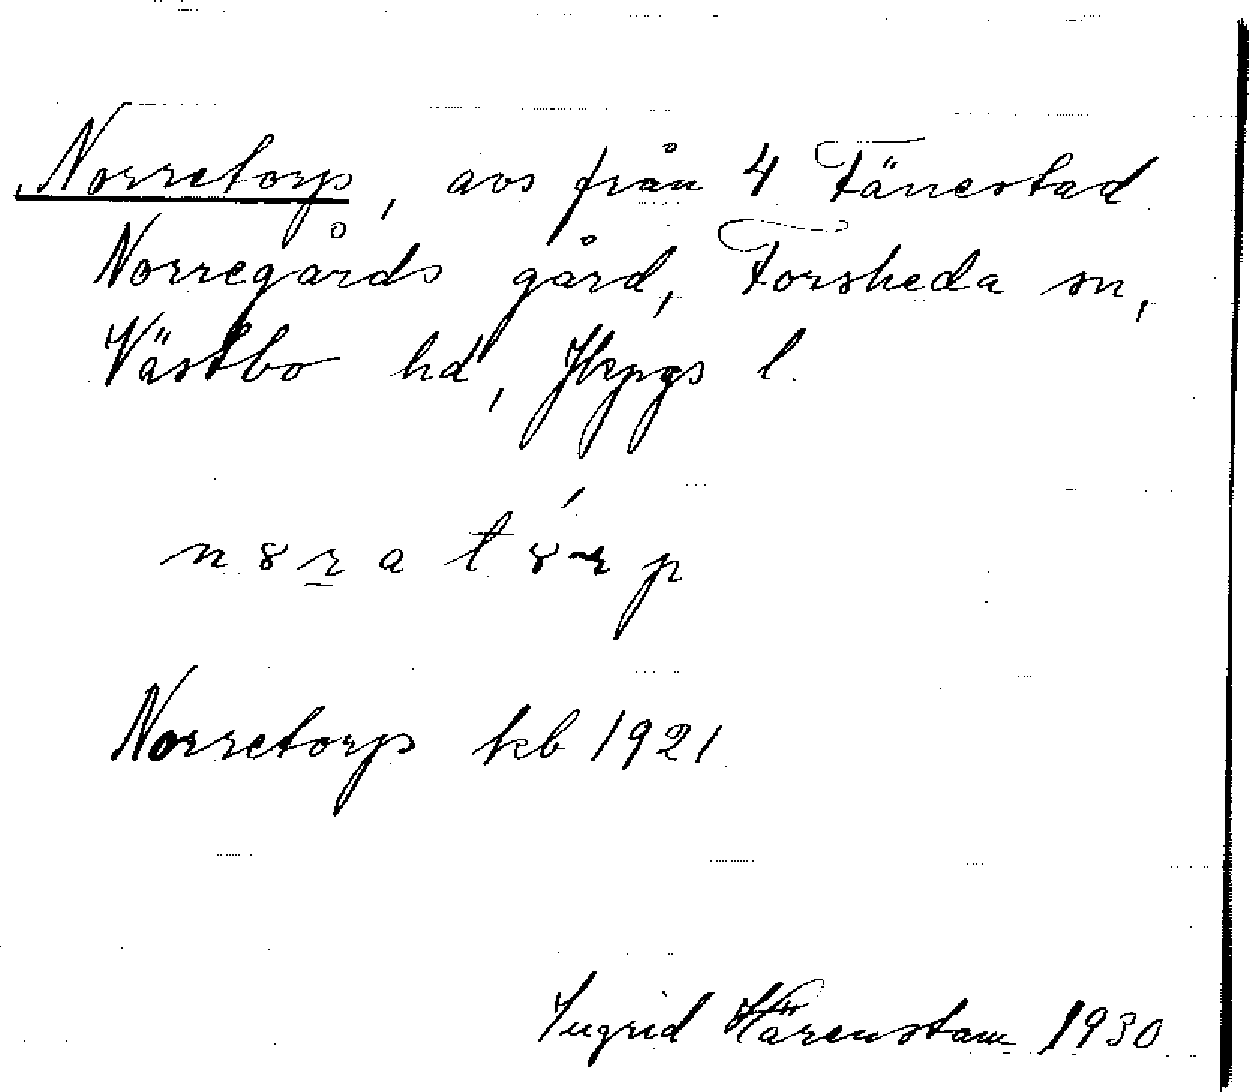 Norretorp, avs från 4 Fänestad
Norregårds gård, Forsheda sn,
Västbo hd, Jkpgs l.
Norretorp kb 1921
Ingrid Härenstam 1930